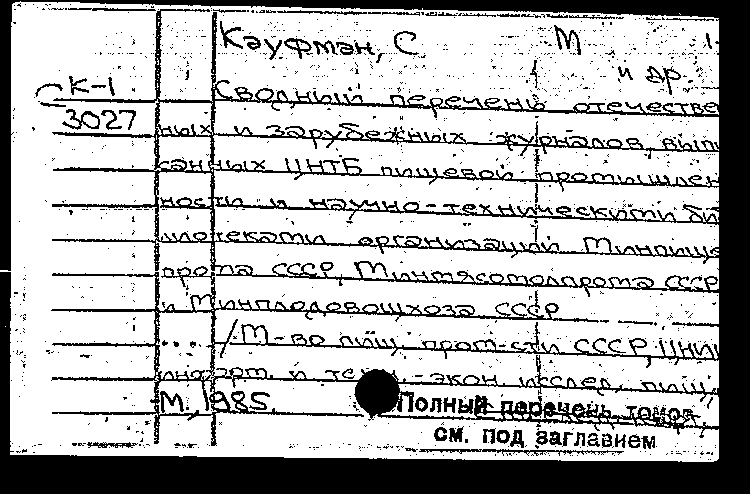 Кауфман, С М
и др.
К-1 Сводный перечень отечествен
3027
ных и зарубежных журналов, выпи
санных ЦНТБ пищевой промышлен
ности и научно-техническими би
лиотеками организаций Минпище
прома СССР, Минмясомолпрома СССР
и Минплодоовощхоза СССР
... /М-во пищ. пром-сти СССР, ЦНИИ
информ. и техн.-экон. исслед. пищ.
М., 1985.
Полный перечень томов
см. под заглавием